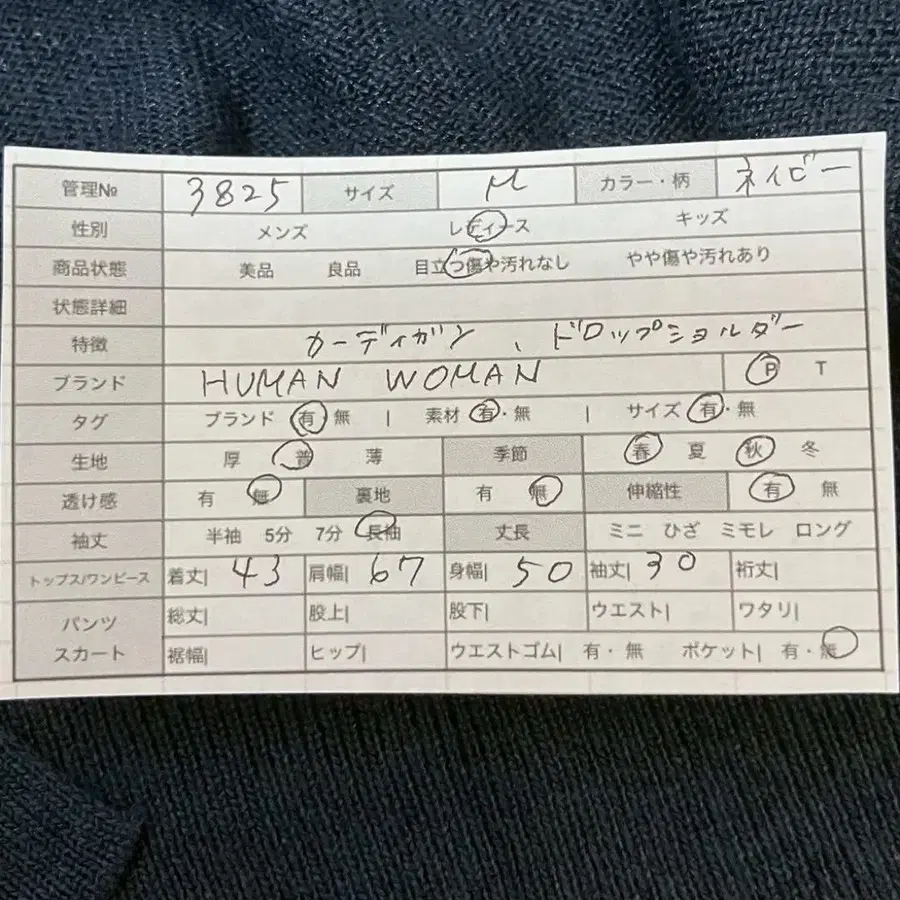 管理№ 3825 サイズ M カラー・柄 ネイビー
性別 メンズ レディース キッズ
商品状態 美品 良品 目立つ傷や汚れなし やや傷や汚れあり
状態詳細
特徴 カーディガン、ドロップショルダー
ブランド HUMAN WOMAN P T
タグ ブランド 有・無 | 素材 有・無 | サイズ 有・無
生地 厚 普 薄 季節 春 夏 秋 冬
透け感 有 無 裏地 有 無 伸縮性 有 無
袖丈 半袖 5分 7分 長袖 丈長 ミニ ひざ ミモレ ロング
トップス/ワンピース 着丈| 43 肩幅| 67 身幅| 50 袖丈| 30 裄丈|
パンツ 総丈| 股上| 股下| ウエスト| ワタリ|
スカート 裾幅| ヒップ| ウエストゴム| 有・無 ポケット| 有・無